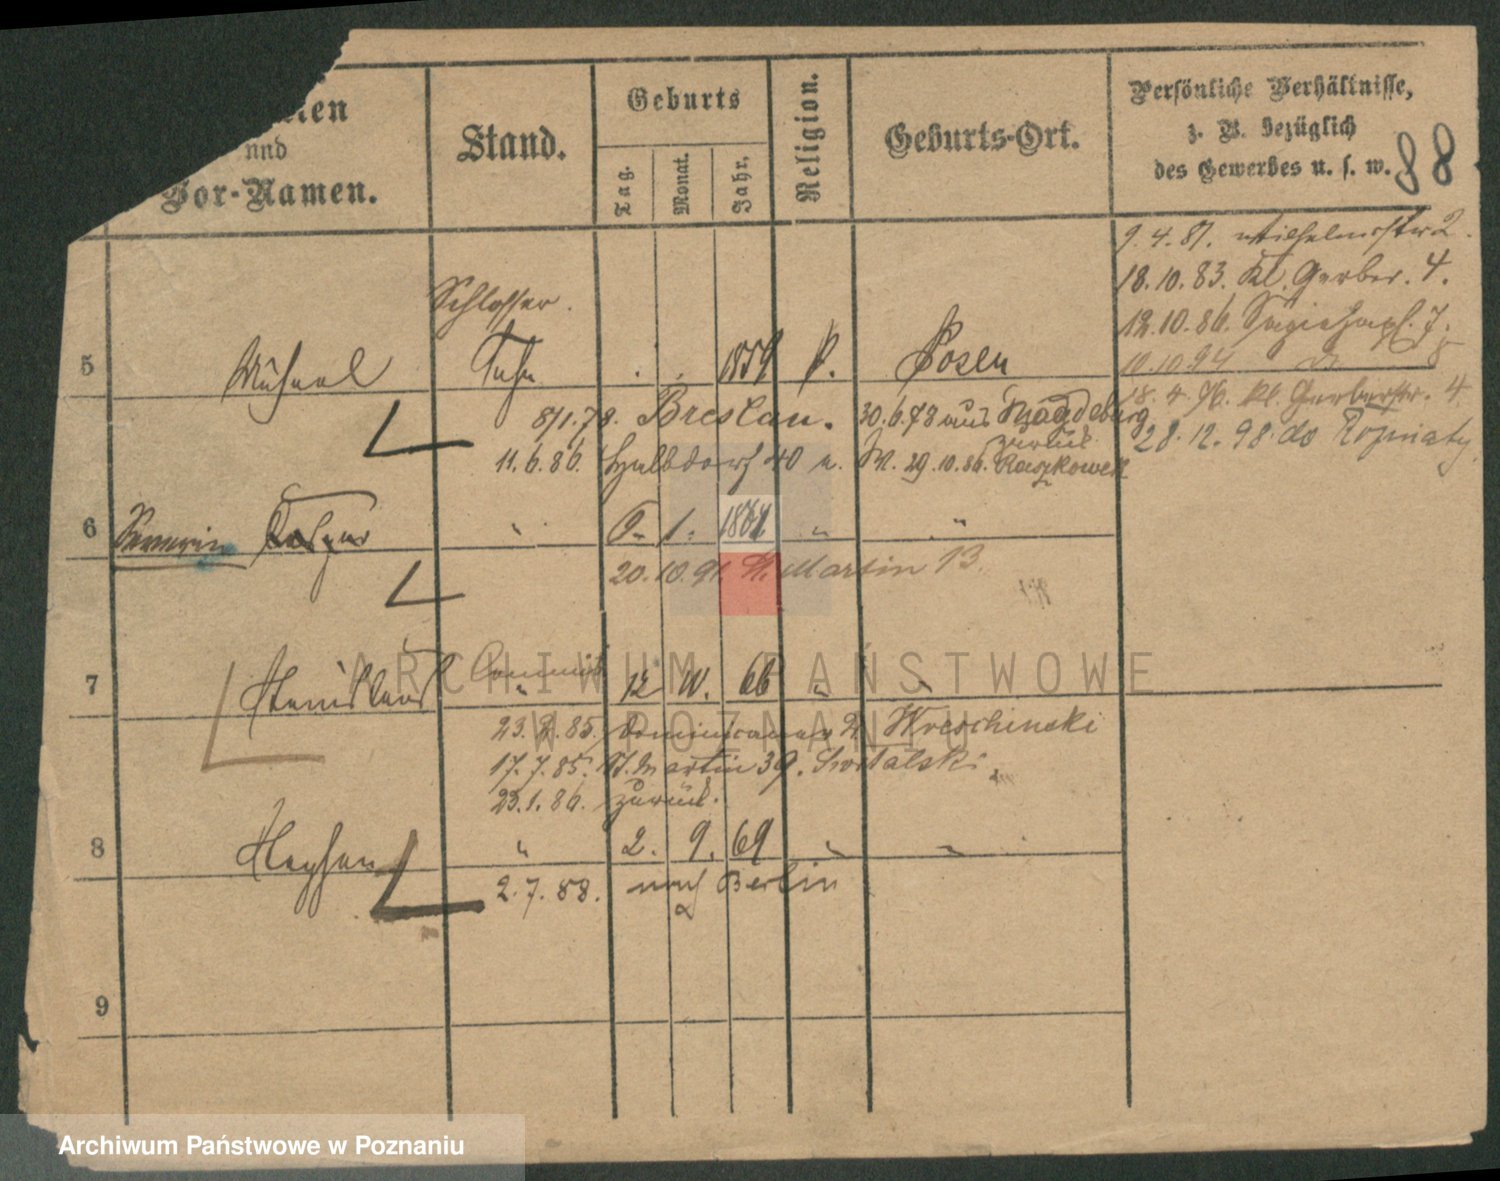 und
Vor-Namen.
Stand.
Geburts
Tag.
Monat.
Jahr.
Religion.
Geburts-Ort.
Persönliche Verhältnisse,
z. B. bezüglich
des Gewerbes u. s. w.
88
9.4.81. Wilhelmstr 2.
18.10.83. Kl. Gerber. 4.
12.10.86. 7.
10.10.94 do
18.4.96. Kl. Gerberstr. 4.
28.12.98. do
5
Michael
Schlosser.
Sohn
1859
k.
Posen
8/1.78. Breslau. 30.6.78 aus Magdeburg
zurück
11.6.86. Halbdorf 40 29.10.86. Raszkowek
6
Severin
"
1.
1861
"
"
20.10.91. St. Martin 13.
7
Stanislaus
Commis
"
12
IV.
66
"
"
23. 85. Dominicaner 2 Wreschinski
17.7.85. St. Martin 39. Switalski.
23.1.86. zurück.
8
Stephan
"
2.
9.
69
"
"
2.7.88. nach Berlin
9
ARCHIWUM PAŃSTWOWE
W POZNANIU
Archiwum Państwowe w Poznaniu